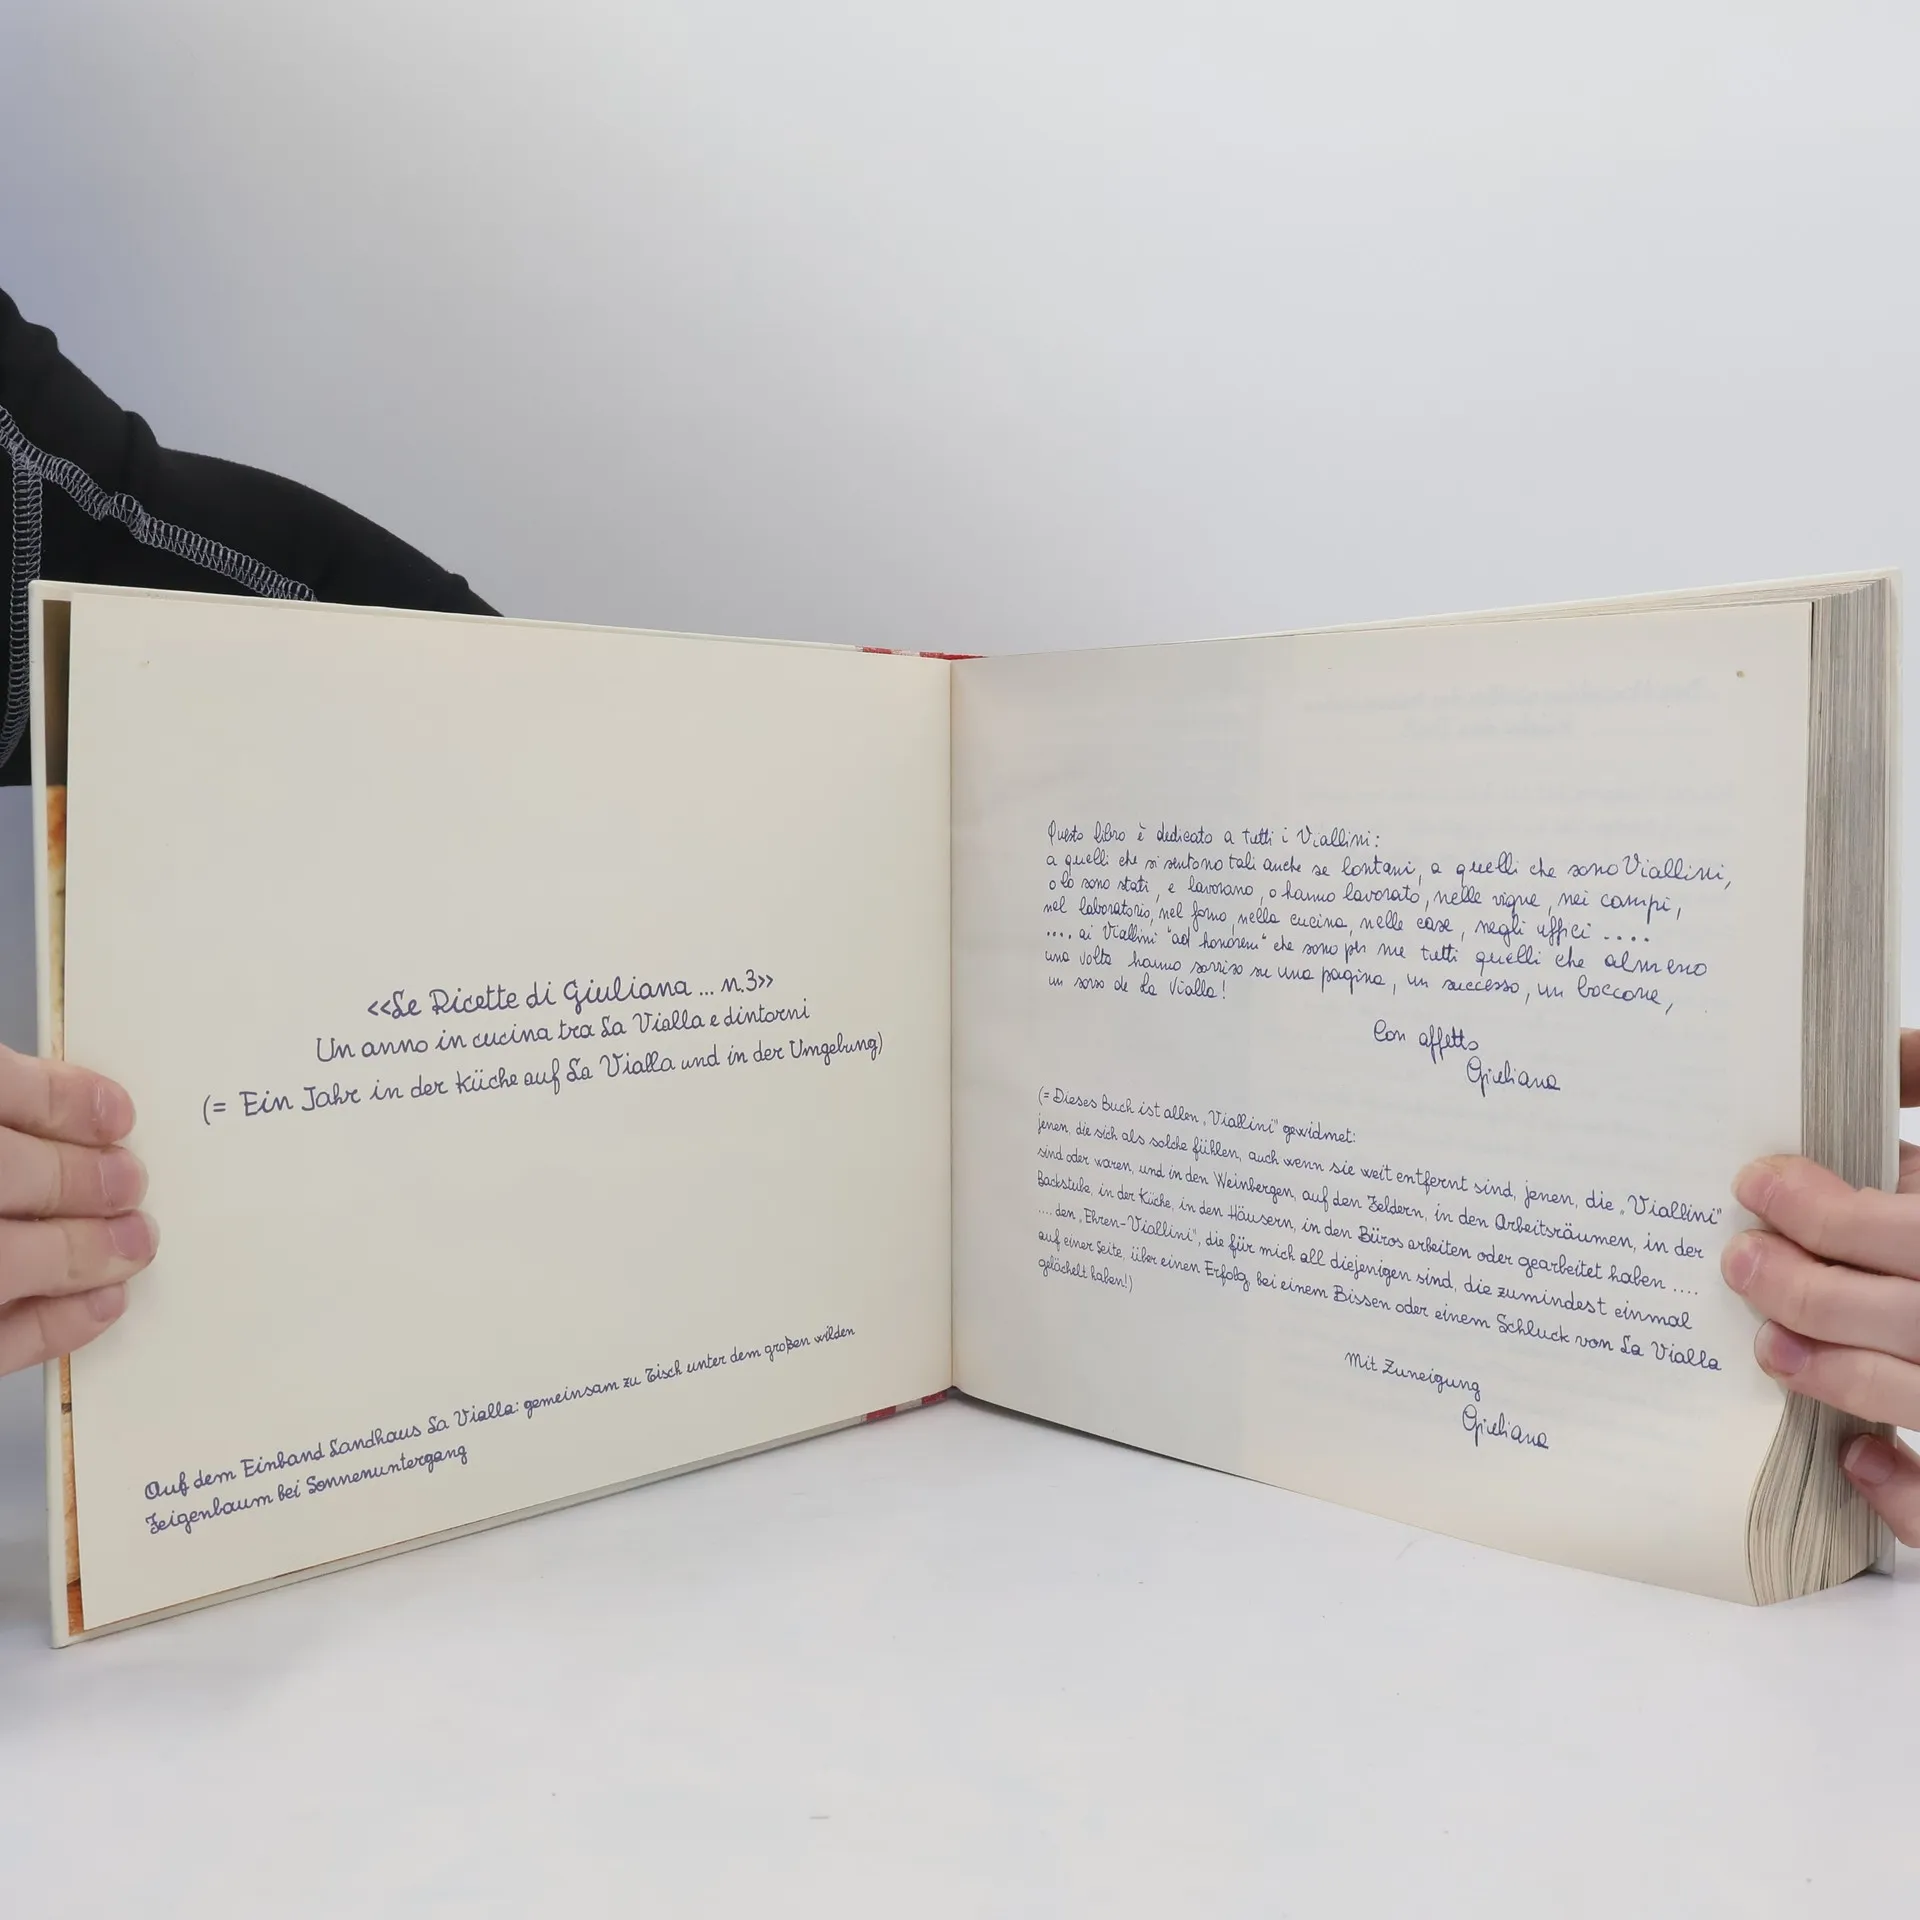 «Le Ricette di Giuliana ... n.3»
Un anno in cucina tra La Vialla e dintorni
(= Ein Jahr in der Küche auf La Vialla und in der Umgebung)
Auf dem Einband Landhaus La Vialla: gemeinsam zu Tisch unter dem großen wilden
Feigenbaum bei Sonnenuntergang
Questo libro è dedicato a tutti i Viallini:
a quelli che si sentono tali anche se lontani, a quelli che sono Viallini,
o lo sono stati, e lavorano, o hanno lavorato, nelle vigne, nei campi,
nel laboratorio, nel forno, nella cucina, nelle case, negli uffici ....
.... ai Viallini "ad honorem" che sono per me tutti quelli che almeno
una volta hanno sorriso su una pagina, un successo, un boccone,
un sorso de La Vialla!
Con affetto
Giuliana
(= Dieses Buch ist allen „Viallini" gewidmet:
jenen, die sich als solche fühlen, auch wenn sie weit entfernt sind, jenen, die „Viallini"
sind oder waren, und in den Weinbergen, auf den Feldern, in den Arbeitsräumen, in der
Backstube, in der Küche, in den Häusern, in den Büros arbeiten oder gearbeitet haben ....
.... den „Ehren-Viallini", die für mich all diejenigen sind, die zumindest einmal
auf einer Seite, über einen Erfolg, bei einem Bissen oder einem Schluck von La Vialla
gelächelt haben!)
Mit Zuneigung
Giuliana